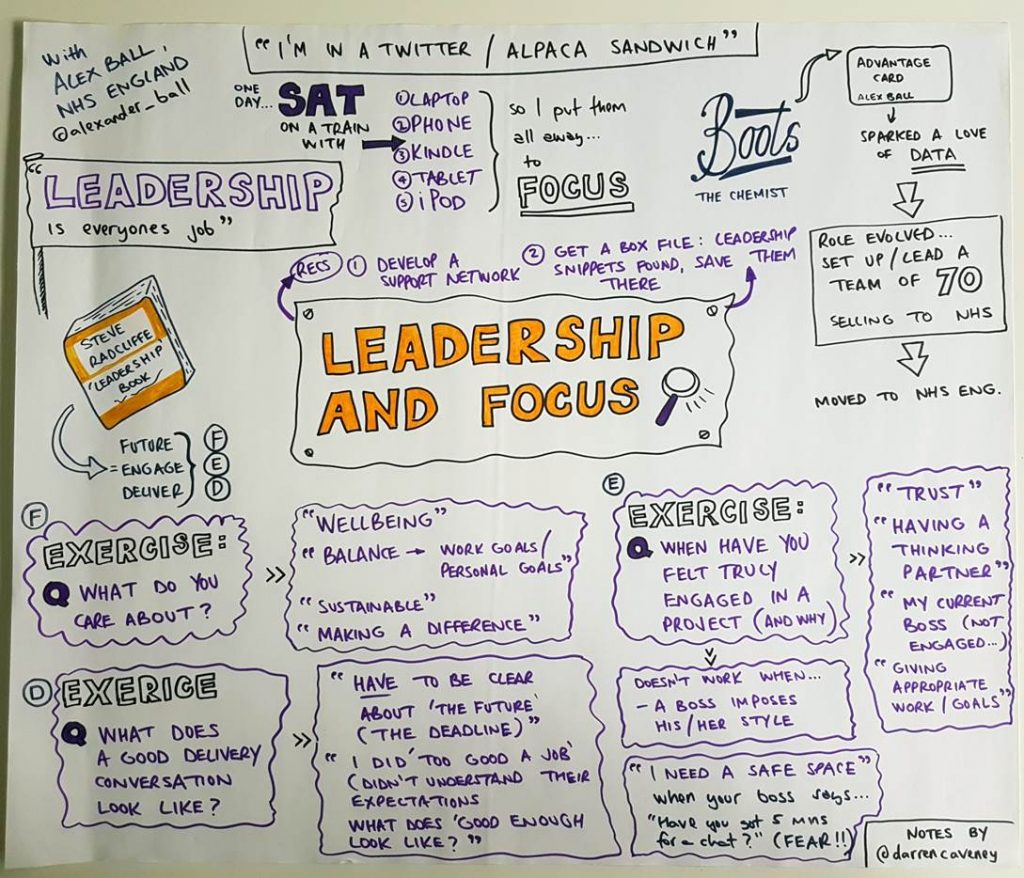 With
ALEX BALL,
NHS ENGLAND
@alexander_ball
"I'M IN A TWITTER / ALPACA SANDWICH"
ONE
DAY...
SAT
ON A TRAIN
WITH
① LAPTOP
② PHONE
③ KINDLE
④ TABLET
⑤ iPOD
so I put them
all away...
to
FOCUS
Boots
THE CHEMIST
ADVANTAGE
CARD
ALEX BALL
SPARKED A LOVE
OF DATA
ROLE EVOLVED...
SET UP / LEAD A
TEAM OF 70
SELLING TO NHS
MOVED TO NHS ENG.
"LEADERSHIP
is everyones job"
RECS
① DEVELOP A
SUPPORT NETWORK
② GET A BOX FILE: LEADERSHIP
SNIPPETS FOUND, SAVE THEM
THERE
LEADERSHIP
AND FOCUS
STEVE
RADCLIFFE
'LEADERSHIP
BOOK'
FUTURE
= ENGAGE
DELIVER
F
E
D
F
EXERCISE:
Q WHAT DO YOU
CARE ABOUT?
"WELLBEING"
"BALANCE → WORK GOALS/
PERSONAL GOALS"
"SUSTAINABLE"
"MAKING A DIFFERENCE"
E
EXERCISE:
Q WHEN HAVE YOU
FELT TRULY
ENGAGED IN A
PROJECT (AND WHY)
"TRUST"
"HAVING A
THINKING
PARTNER"
"MY CURRENT
BOSS (NOT
ENGAGED...)
"GIVING
APPROPRIATE
WORK / GOALS"
DOESN'T WORK WHEN...
- A BOSS IMPOSES
HIS/HER STYLE
"I NEED A SAFE SPACE"
when your boss says...
"Have you got 5 mns
for a chat?" (FEAR!!)
D
EXERICE
Q WHAT DOES
A GOOD DELIVERY
CONVERSATION
LOOK LIKE?
"HAVE TO BE CLEAR
ABOUT 'THE FUTURE'
(THE DEADLINE)"
"I DID 'TOO GOOD A JOB'
(DIDN'T UNDERSTAND THEIR
EXPECTATIONS
WHAT DOES 'GOOD ENOUGH
LOOK LIKE?"
NOTES BY
@darrencaveney